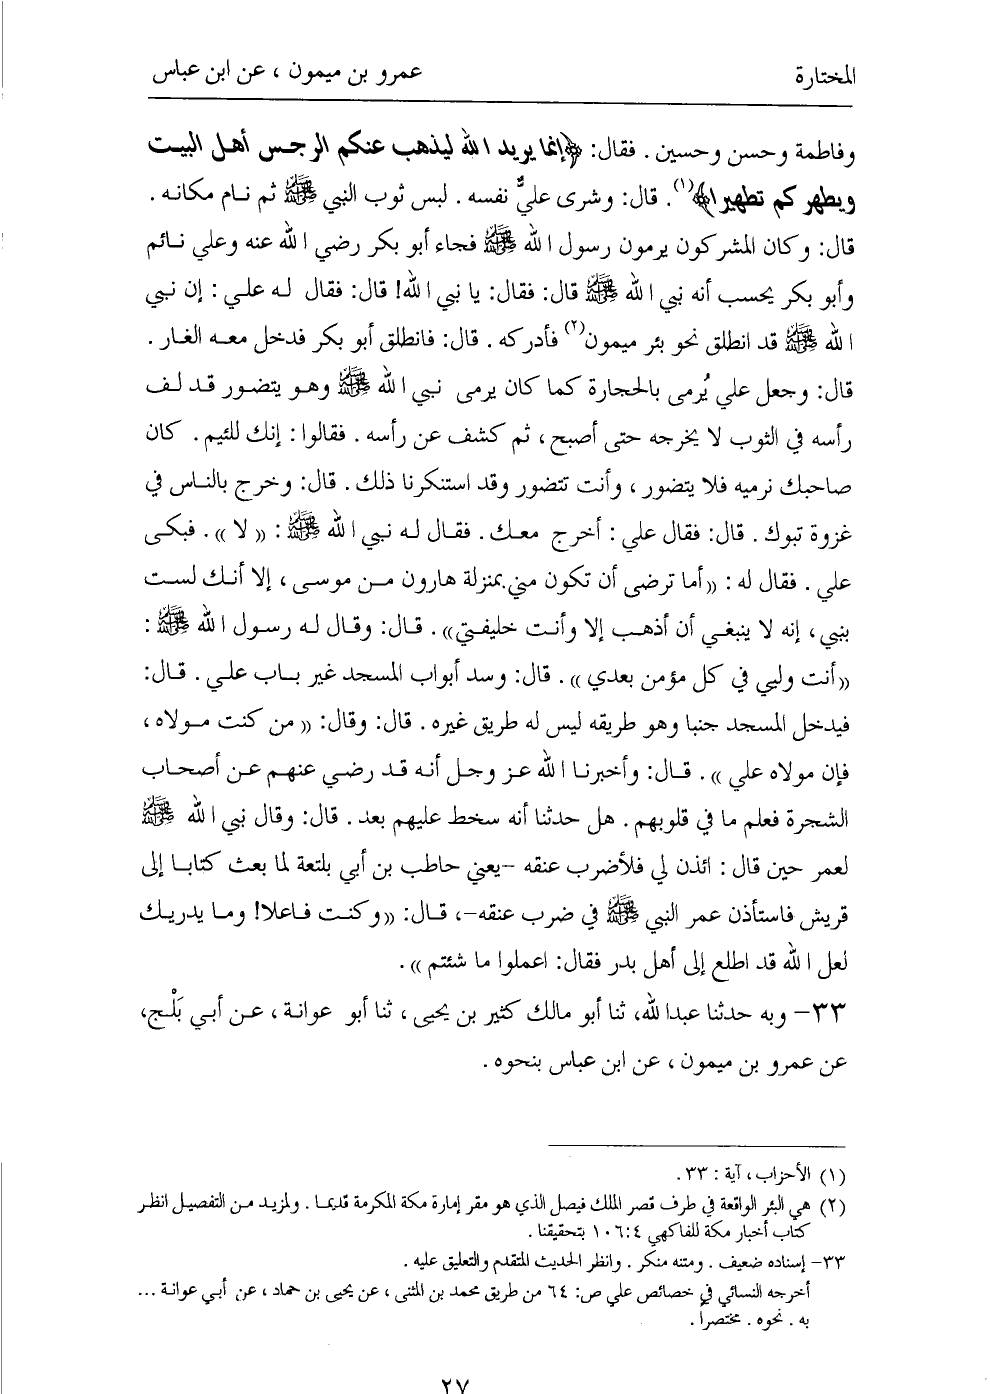 المختارة
عمرو بن ميمون ، عن ابن عباس
وفاطمة وحسن وحسين . فقال: ﴿إنما يريد الله ليذهب عنكم الرجس أهل البيت
ويطهركم تطهيرا﴾(١). قال: وشرى عليٌّ نفسه . لبس ثوب النبي ﷺ ثم نام مكانه .
قال: وكان المشركون يرمون رسول الله ﷺ فجاء أبو بكر رضي الله عنه وعلي نائم
وأبو بكر يحسب أنه نبي الله ﷺ قال: فقال: يا نبي الله! قال: فقال له علي : إن نبي
الله ﷺ قد انطلق نحو بئر ميمون(٢) فأدركه . قال: فانطلق أبو بكر فدخل معه الغار .
قال: وجعل علي يُرمى بالحجارة كما كان يرمى نبي الله ﷺ وهو يتضور قد لف
رأسه في الثوب لا يخرجه حتى أصبح ، ثم كشف عن رأسه . فقالوا : إنك للئيم . كان
صاحبك نرميه فلا يتضور ، وأنت تتضور وقد استنكرنا ذلك . قال: وخرج بالناس في
غزوة تبوك . قال: فقال علي : أخرج معك . فقال له نبي الله ﷺ : « لا » . فبكى
علي . فقال له : « أما ترضى أن تكون مني بمنزلة هارون من موسى ، إلا أنك لست
بنبي ، إنه لا ينبغي أن أذهب إلا وأنت خليفتي» . قال: وقال له رسول الله ﷺ :
« أنت وليي في كل مؤمن بعدي » . قال: وسد أبواب المسجد غير باب علي . قال:
فيدخل المسجد جنبا وهو طريقه ليس له طريق غيره . قال: وقال: « من كنت مولاه ،
فإن مولاه علي » . قال: وأخبرنا الله عز وجل أنه قد رضي عنهم عن أصحاب
الشجرة فعلم ما في قلوبهم . هل حدثنا أنه سخط عليهم بعد . قال: وقال نبي الله ﷺ
لعمر حين قال : ائذن لي فلأضرب عنقه -يعني حاطب بن أبي بلتعة لما بعث كتابا إلى
قريش فاستأذن عمر النبي ﷺ في ضرب عنقه-، قال: « وكنت فاعلا! وما يدريك
لعل الله قد اطلع إلى أهل بدر فقال: اعملوا ما شئتم » .
٣٣- وبه حدثنا عبدالله، ثنا أبو مالك كثير بن يحيى ، ثنا أبو عوانة ، عن أبي بَلْج،
عن عمرو بن ميمون ، عن ابن عباس بنحوه .
(١) الأحزاب ، آية : ٣٣ .
(٢) هي البئر الواقعة في طرف قصر الملك فيصل الذي هو مقر إمارة مكة المكرمة قديما . ولمزيد من التفصيل انظر
كتاب أخبار مكة للفاكهي ١٠٦:٤ بتحقيقنا .
٣٣- إسناده ضعيف . ومتنه منكر . وانظر الحديث المتقدم والتعليق عليه .
أخرجه النسائي في خصائص علي ص: ٦٤ من طريق محمد بن المثنى ، عن يحيى بن حماد ، عن أبي عوانة ...
به . نحوه . مختصراً .
٢٧